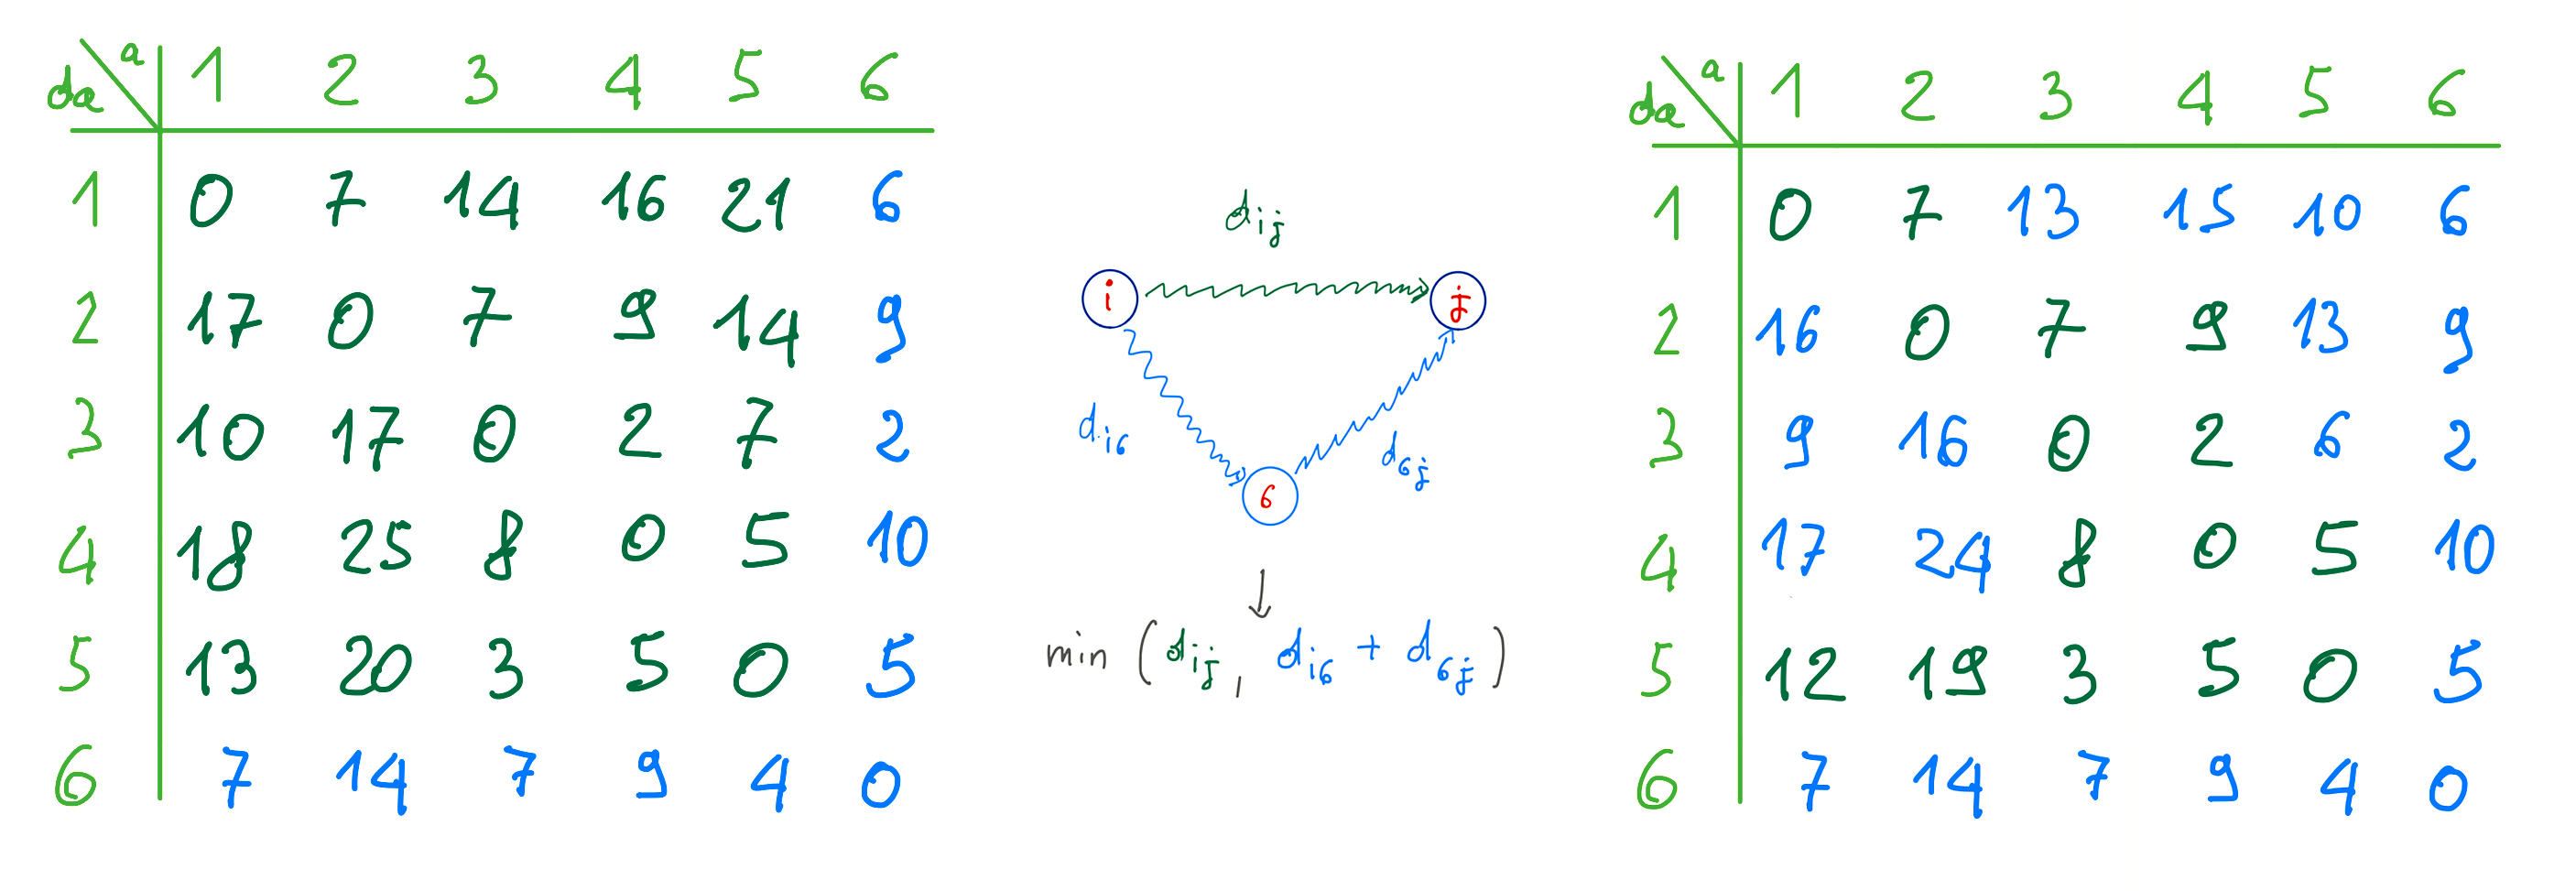 da a 1 2 3 4 5 6
1 0 7 14 16 21 6
2 17 0 7 9 14 9
3 10 17 0 2 7 2
4 18 25 8 0 5 10
5 13 20 3 5 0 5
6 7 14 7 9 4 0
d_ij
i j
d_i6 d_6j
6
↓
min (d_ij, d_i6 + d_6j)
da a 1 2 3 4 5 6
1 0 7 13 15 10 6
2 16 0 7 9 13 9
3 9 16 0 2 6 2
4 17 24 8 0 5 10
5 12 19 3 5 0 5
6 7 14 7 9 4 0